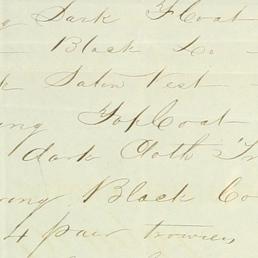 Dark F Coat
Black Do
k Satin Vest
ing Top Coat
dark Cloth Tr
ring Black Co
4 pair trowsers